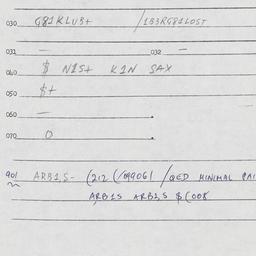 030 G81KLUB+ /1B3RG81LOST
031 — 032 —
040 $ N1S+ K1N SAX
050 $+
060 — .
070 O .
901 ARB1,S- (212 (/099061 /QED MINIMAL
ARB1S ARB1,S $(00K